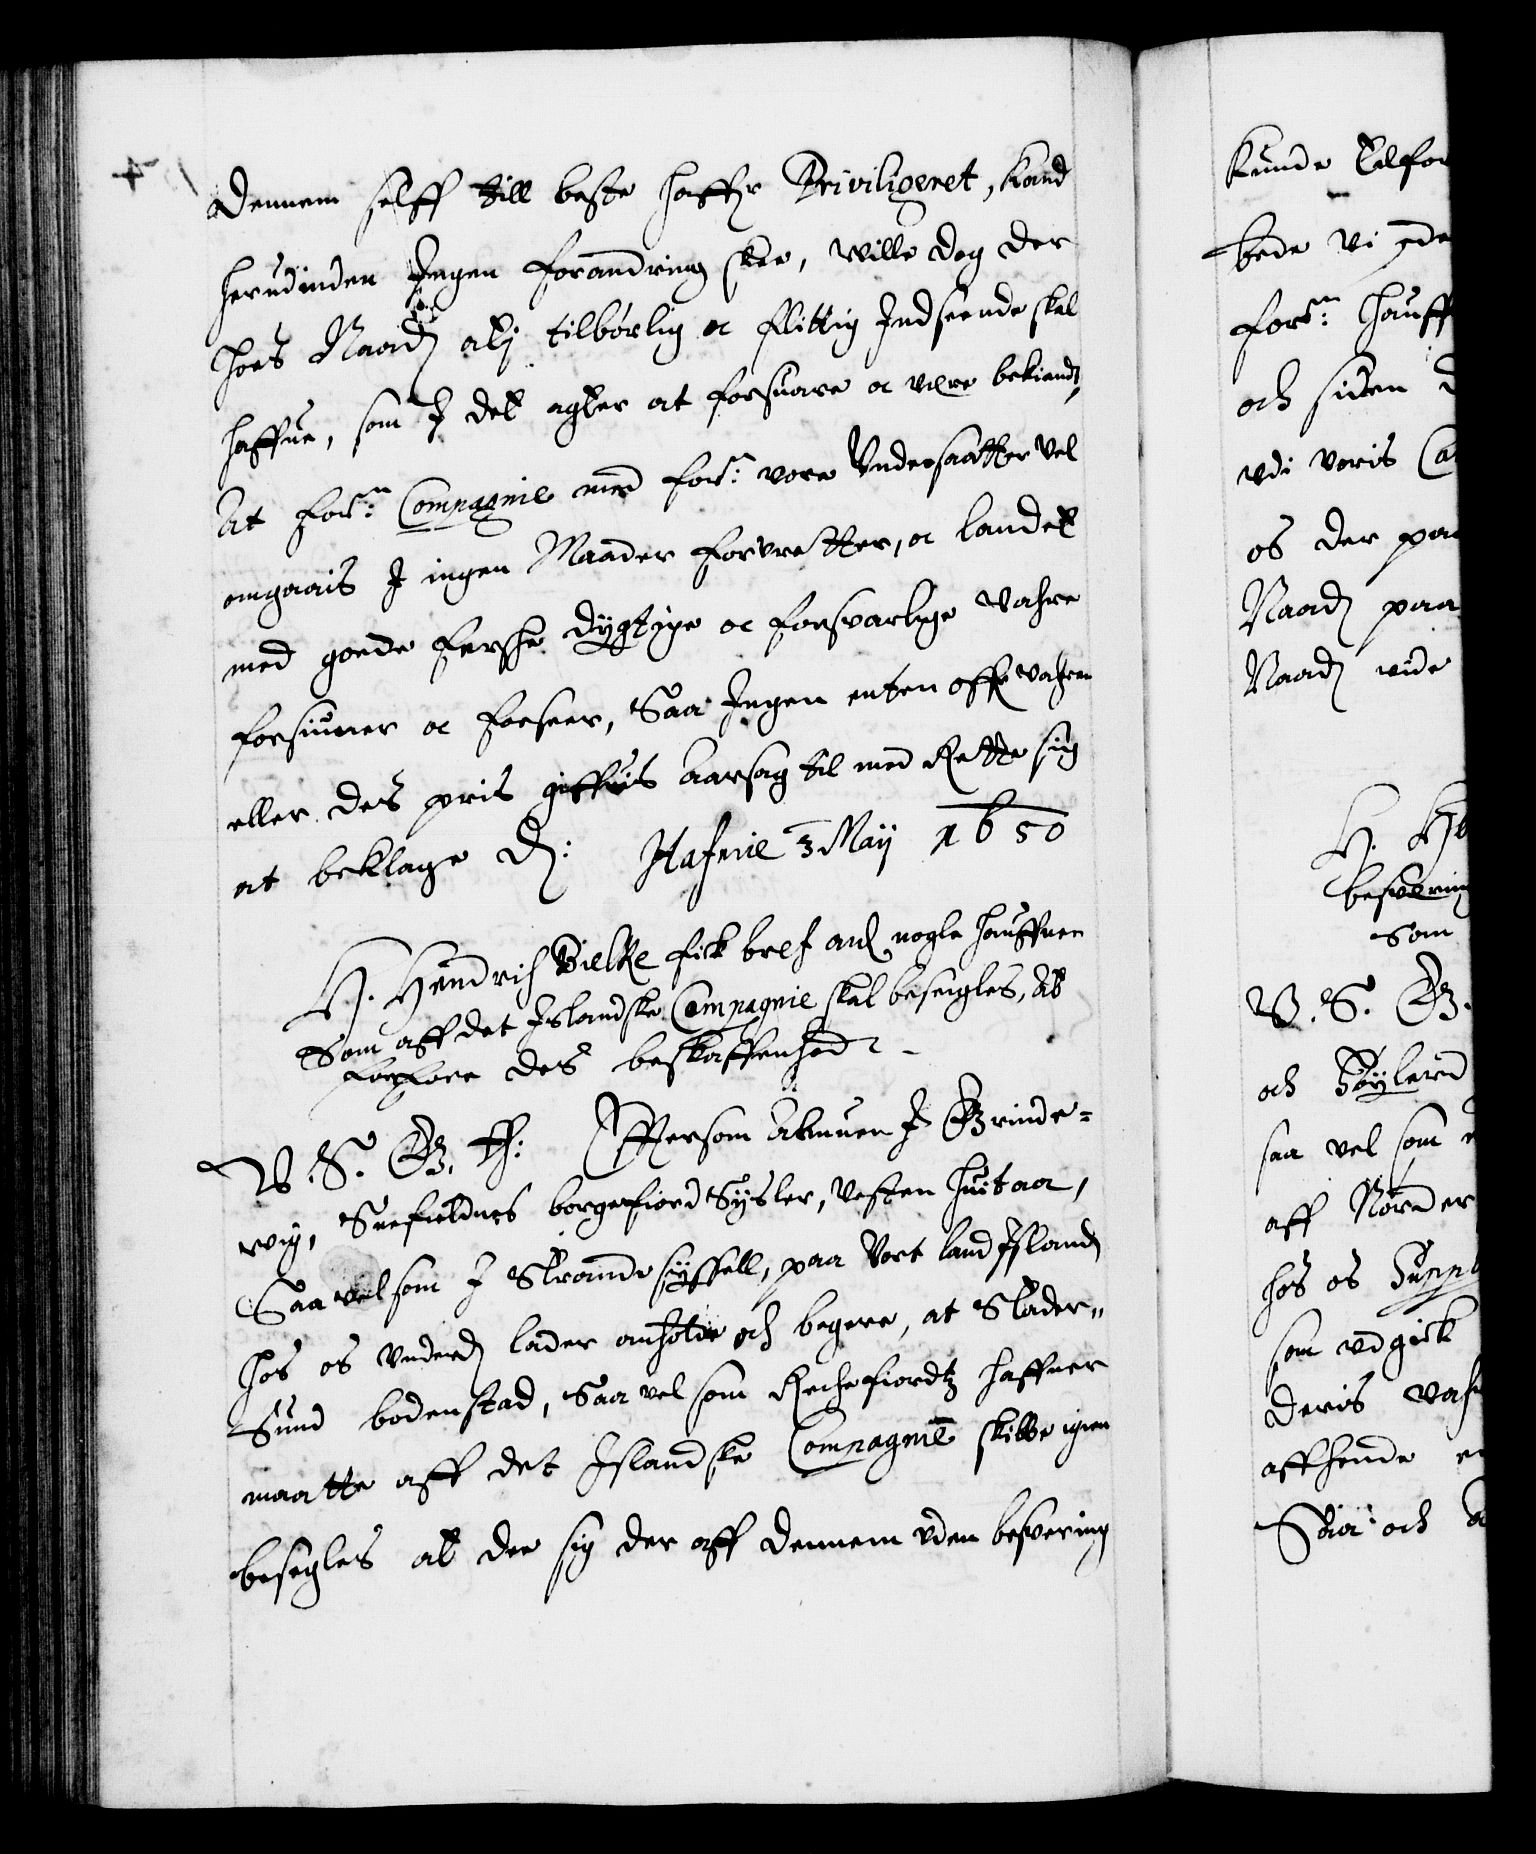 dennem selff till beste haffr Priviligeret, kand
herudinden Ingen forandring skee, wille dog der
hoes Naadj alj tilbørlig oc flittig Indseende skal
haffue, som I det agter at forsuare oc være bekiendt,
At forn: Compagnie med forn: vore Vndersaatter vel
omgaais I ingen Maader forvretter, oc landet
med goede ferske dygtige oc forsvarlige vahre
forsiuner oc forseer, Saa Ingen enten offr vahren
eller des pris giffuis Aarsag til med Rette sig
at beklage Dj: Hafnie 3 Maij 1650
H. Hendrich Bielke fick bref anl nogle hauffner
Som aff det Islandske Compagnie skal beseigles, At
forfare des beskaffenhed
W. S. G. T: Eftersom Almuen I Grinde-
wig, Snefieldnes borgefiord Sysler, Vesten Huitaa,
Saa vel som I Strande syssell, paa Vort land Island
hos os Vnderdj lader anholde och begere, at Stader-
Sund bodenstad, Saa vel som Reckefiordtz haffner
maatte aff det Islandske Compagnie skibbe igien
besegles at de sig der aff dennem uden besvering
Kunde
bede vi
forn: hauff
och siden
vdi voris
os der paa
Naadj paa
Naadj vide
H.
besvering
Som
W. S. G.
och
saa vel som
aff Nørder
hos os
som udgick
deris
affhende
Saa och